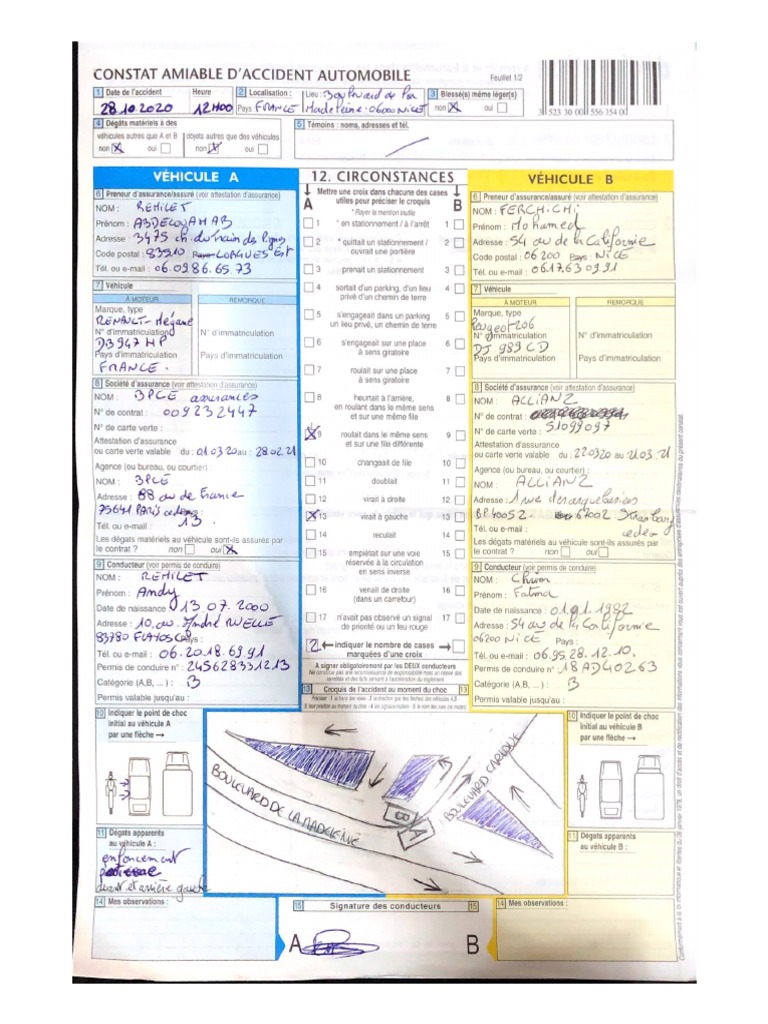 CONSTAT AMIABLE D'ACCIDENT AUTOMOBILE
Feuillet 1/2
1 Date de l'accident Heure
28.10.2020 12H00
2 Localisation :
Pays FRANCE
Lieu : Boulevard de la
Madeleine. 06000 NICE
3 Blessé(s) même léger(s)
non X oui
3 523 30 00 556 354 00
4 Dégâts matériels à des
véhicules autres que A et B
non X oui
objets autres que des véhicules
non X oui
5 Témoins : noms, adresses et tél.
VÉHICULE A
6 Preneur d'assurance/assuré (voir attestation d'assurance)
NOM : REMILET
Prénom : ABDELOUAHAB
Adresse : 3475 ch. du train de Pignes
Code postal : 83510 Pays : LORGUES Est
Tél. ou e-mail : 06.0986.65.73
7 Véhicule
À MOTEUR
Marque, type
RENAULT-Mégane
N° d'immatriculation
DB947HP
Pays d'immatriculation
FRANCE.
REMORQUE
N° d'immatriculation
Pays d'immatriculation
8 Société d'assurance (voir attestation d'assurance)
NOM : BPCE assurances
N° de contrat : 009232447
N° de carte verte :
Attestation d'assurance
ou carte verte valable du : 01.03.20 au : 28.02.21
Agence (ou bureau, ou courtier)
NOM : BPCE
Adresse : 88 av de France
75641 PARIS cedex
Tél. ou e-mail : 13.
Les dégâts matériels au véhicule sont-ils assurés par
le contrat ? non oui X
9 Conducteur (voir permis de conduire)
NOM : REMILET
Prénom : Andy
Date de naissance : 13.07.2000
Adresse : 10, av. André
83780 Pays :
Tél. ou e-mail : 06.20.18.69.91
Permis de conduire n° : 24562833 12 13
Catégorie (A,B, ... ) : B
Permis valable jusqu'au :
10 Indiquer le point de choc
initial au véhicule A
par une flèche →
11 Dégâts apparents
au véhicule A :
enfoncement
avant et arrière gauche
14 Mes observations :
12. CIRCONSTANCES
A B
Mettre une croix dans chacune des cases
utiles pour préciser le croquis
* Rayer la mention inutile
1 * en stationnement / à l'arrêt 1
2 * quittait un stationnement / 2
ouvrait une portière
3 prenait un stationnement 3
4 sortait d'un parking, d'un lieu 4
privé d'un chemin de terre
5 s'engageait dans un parking 5
un lieu privé, un chemin de terre
6 s'engageait sur une place 6
à sens giratoire
7 roulait sur une place 7
à sens giratoire
8 heurtait à l'arrière, 8
en roulant dans le même sens
et sur une même file
X 9 roulait dans le même sens 9
et sur une file différente
10 changeait de file 10
11 doublait 11
12 virait à droite 12
X 13 virait à gauche 13
14 reculait 14
15 empiétait sur une voie 15
réservée à la circulation
en sens inverse
16 venait de droite 16
(dans un carrefour)
17 n'avait pas observé un signal 17
de priorité ou un feu rouge
2 ← indiquer le nombre de cases →
marquées d'une croix
A signer obligatoirement par les DEUX conducteurs
Ne constitue pas une reconnaissance de responsabilité mais un relevé des
identités et des faits servant à l'accélération du règlement
13 Croquis de l'accident au moment du choc 13
BOULEVARD DE LA MADELEINE
B
A
BOULEVARD CARLONE
15 Signature des conducteurs 15
A
B
VÉHICULE B
6 Preneur d'assurance/assuré (voir attestation d'assurance)
NOM : FERCHICHI
Prénom : Mohamed
Adresse : 54 av de la Californie
Code postal : 06200 Pays : NICE
Tél. ou e-mail : 0617630991
7 Véhicule
À MOTEUR
Marque, type
Peugeot 206
N° d'immatriculation
DJ 989 CD
Pays d'immatriculation
REMORQUE
N° d'immatriculation
Pays d'immatriculation
8 Société d'assurance (voir attestation d'assurance)
NOM : ALLIANZ
N° de contrat :
N° de carte verte : 51099097
Attestation d'assurance
ou carte verte valable du : 220320 au 21.03.21
Agence (ou bureau, ou courtier) :
NOM : ALLIANZ
Adresse : 1 rue des arquebusiers
BP 40052 67002 Strasbourg
cedex
Tél. ou e-mail :
Les dégâts matériels au véhicule sont-ils assurés par
le contrat ? non oui
9 Conducteur (voir permis de conduire)
NOM :
Prénom : Fatma
Date de naissance : 01.01.1982
Adresse : 54 av de la Californie
06200 NICE Pays :
Tél. ou e-mail : 06.95.28.12.10.
Permis de conduire n° : 18AD40263
Catégorie (A,B, ... ) : B
Permis valable jusqu'au :
10 Indiquer le point de choc
initial au véhicule B
par une flèche →
11 Dégâts apparents
au véhicule B :
14 Mes observations :